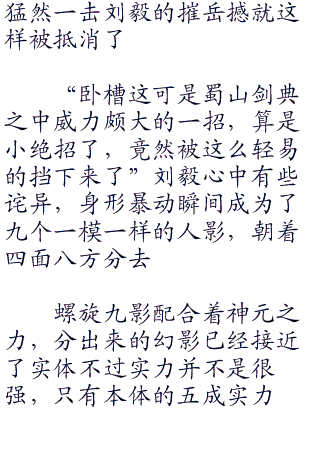 猛然一击刘毅的摧岳撼就这
样被抵消了
“卧槽这可是蜀山剑典
之中威力颇大的一招，算是
小绝招了，竟然被这么轻易
的挡下来了”刘毅心中有些
诧异，身形暴动瞬间成为了
九个一模一样的人影，朝着
四面八方分去
螺旋九影配合着神元之
力，分出来的幻影已经接近
了实体不过实力并不是很
强，只有本体的五成实力